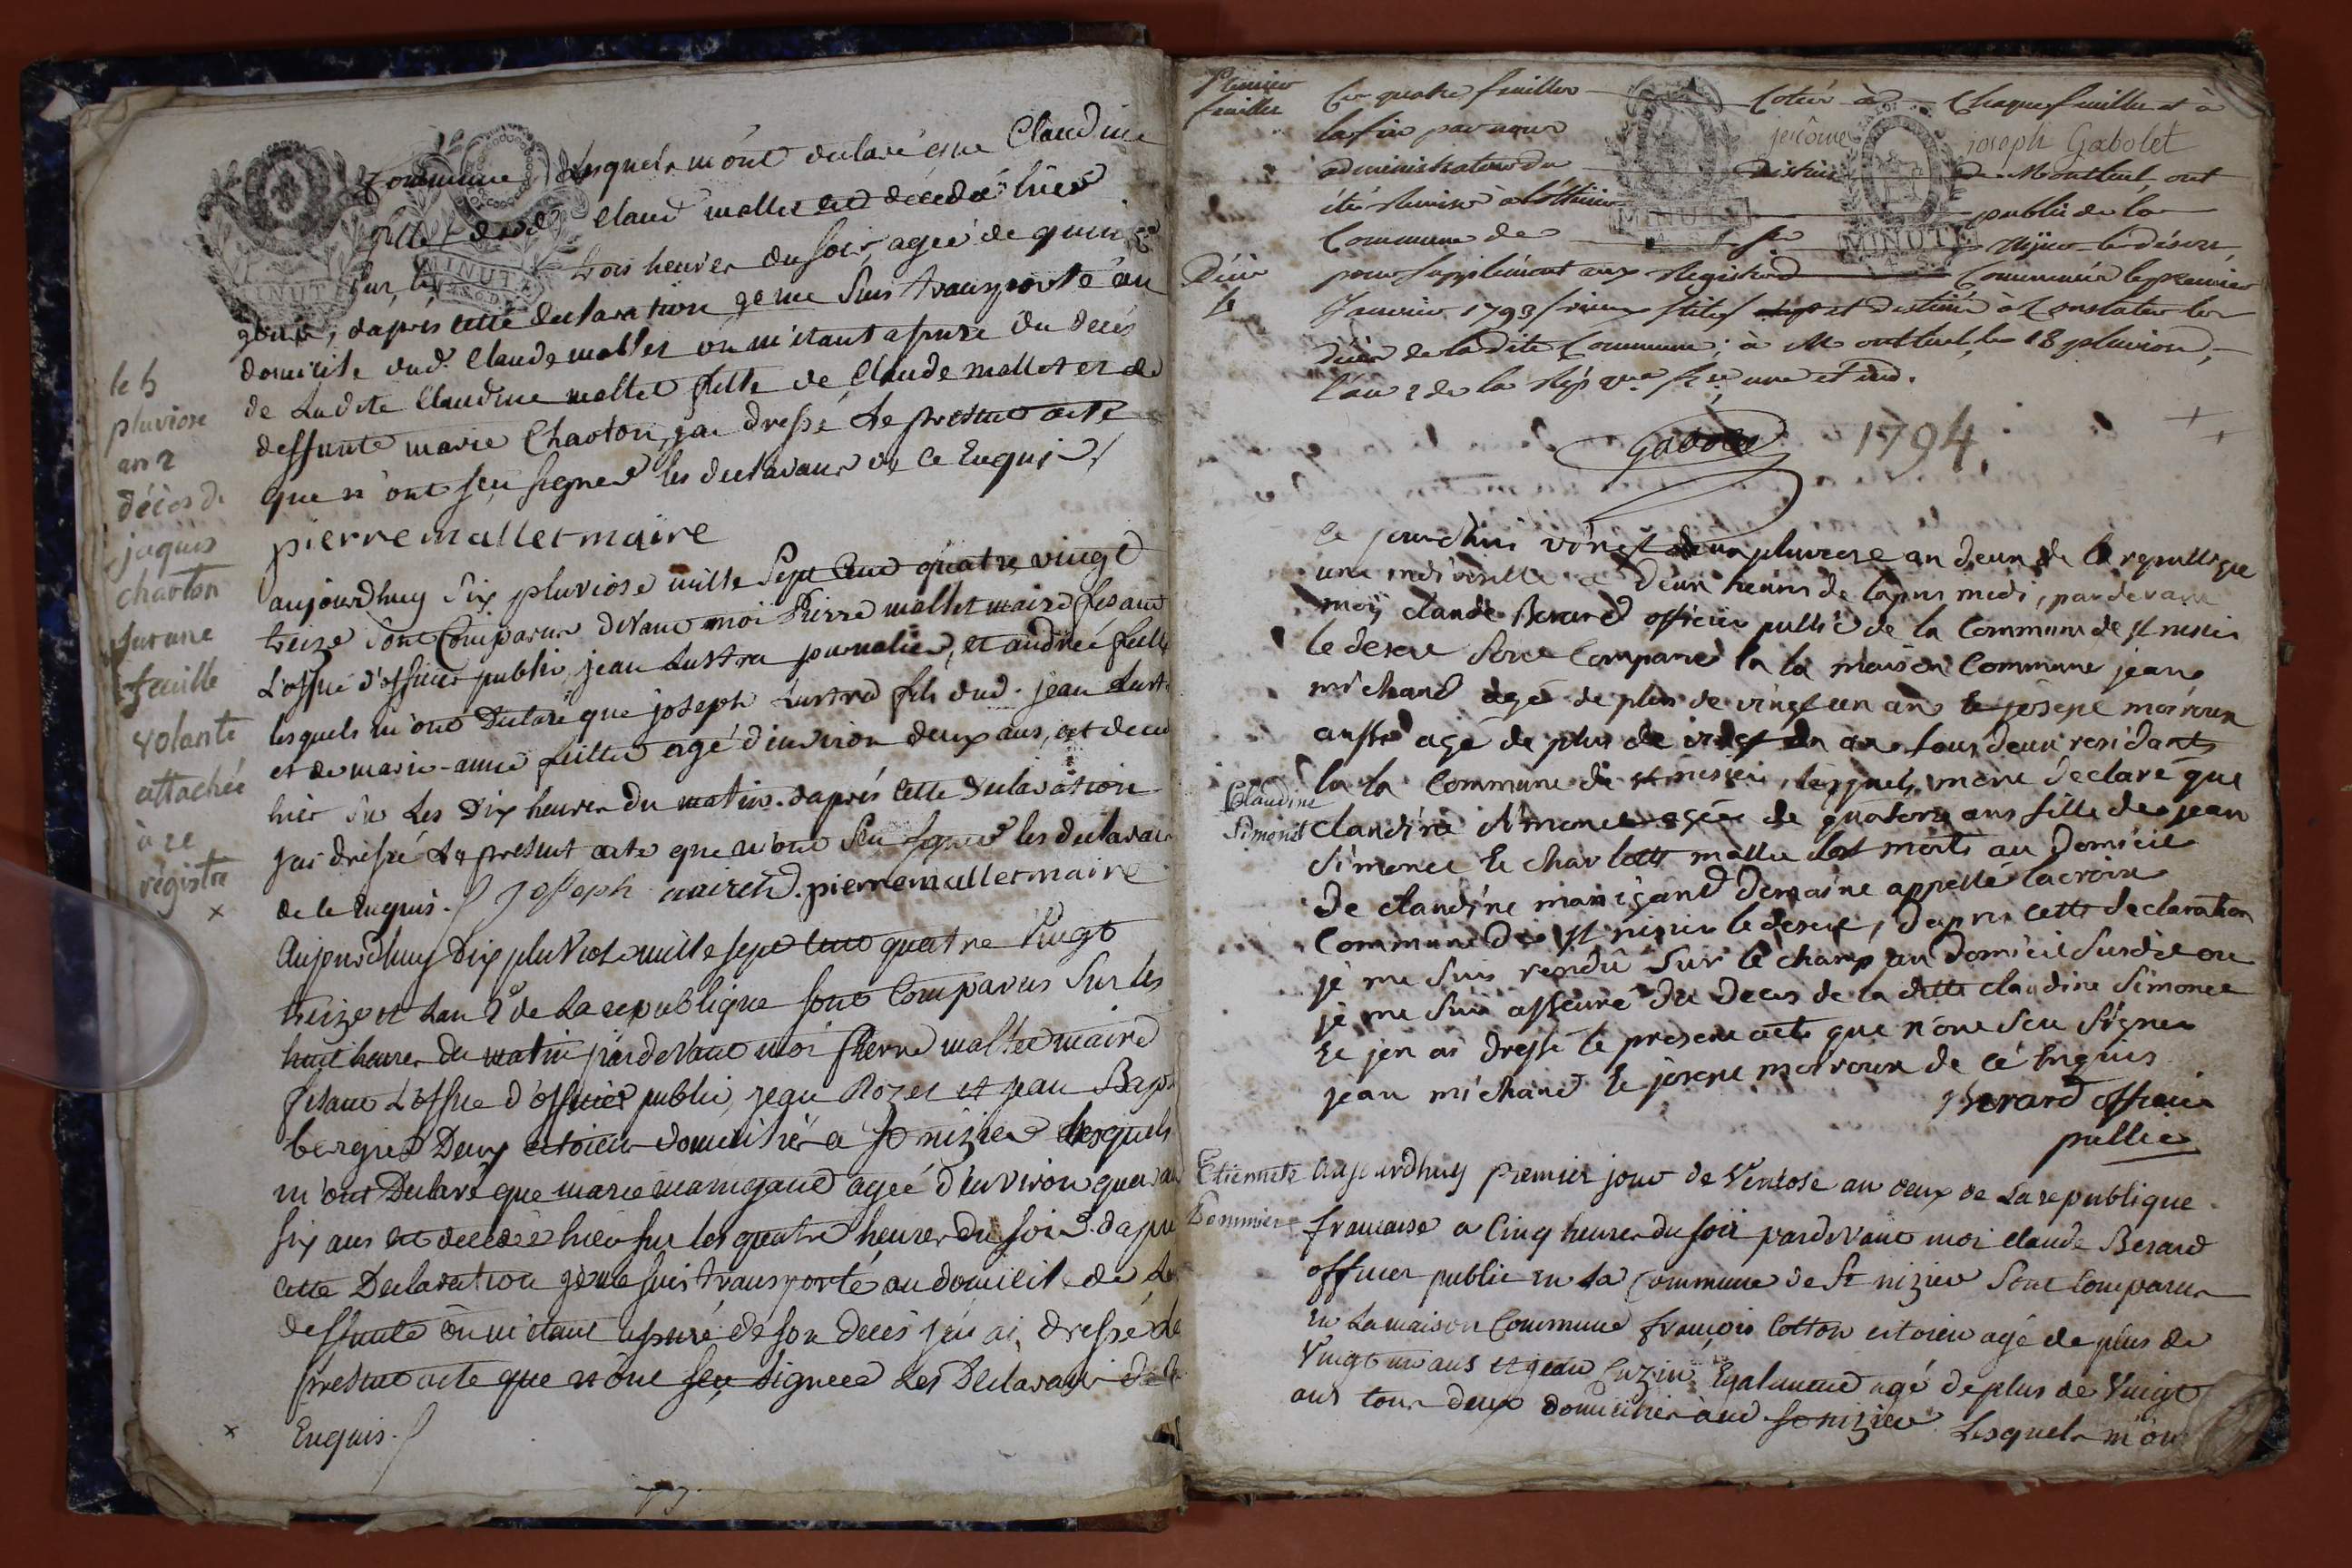 Commune Lesquels m'ont declaré que Claudine
fille dud. Claud mallet est décédé hier
sur les trois heures du soir, agée de quinze
jours, dapres cette declaration je me suis transporté au
domicile dud. Claude mallet ou m'étant assuré du decés
de Ladite Claudine mallet fille de Claude mallet et de
deffunte marie Charton, jai dressé le present acte
que n'ont seu signer les declarans de ce Enquis
pierre mallet maire
aujourdhuy Six pluviose mille Sept Cent quatre vingt
treize sont Comparus devant moi Pierre mallet maire fesant
L'office d'officier public, jean Lustra journalier, et andreé feille
lesquels m'ont Declaré que joseph Lustra fils dud. jean Lust
et de marie-anne feille agé d'environ deux ans, est decede
hier sur Les Dix heures du matin. dapres Cette declaration
jai dressé Le present acte que n'ont Seu signer les declarans
de le enquis. Joseph . pierre mallet maire
Aujourdhuy Dix pluviose mille sept cent quatre Vingt
treize et Lan 2e de La republique sont Comparus Sur les
huit heures du matin pardevant moi Pierre mallet maire
fesant L'office d'officier public, jean Rozet et jean Bap
bergier Deux citoiens domicilies a St nizier lesquels
m'ont Declaré que marie manigand agée d'environ quarante
six ans est decedeé hier sur les quatre heures du soir. dapres
cette Declaration je me suis transporté au domicile de La
deffunte ou m'etant assuré de son decés j'en ai dressé le
present acte que n'ont seu signer Les Declarans de le
Enquis.
le 5
pluviose
an 2
décès de
jaques
charton
sur une
feuille
volante
attachée
à ce
régistre
x
x
Premier
feuillet
Ces quatre feuilles Cotées à Chaque feuille et à
la fin par nous jerôme joseph Gabolet
administrateur du District de Montluel, ont
été remises à l'officier public de la
Commune de St Nizier le désert,
Décès
pour supplément aux Registres Commencés le premier
Janvier 1793 (vieux stile) et destinés à Constater les
décès de ladite Commune; à Montluel, le 18 pluviose,
l'an 2 de la Rép. une et ind.
Gabolet
1794.
Ce jourdhui vingt deux pluviose an deux de la republique
une indivisille a deux heures de lapres medi, pardevant
moy claude Berard officier public de la Commune de St nisier
le desert Sont Comparus En la maison Commune jean
michand agé de plus de vingt un an Et josepe moiroux
aussi agé de plus de vingt un an tous deux residants
En la Commune de st nisier, lesquels mont declaré que
Claudine
Simonet
claudine simonet agée de quatorze ans fille de jean
Simonet Et charlotte mallet Est morte au Domicile
De claudine manigand domaine appelle lacroix
Commune de st nisier le desert, dapres cette declaration
je me suis rendû Sur le champ au Domicil Susdit ou
je me suis asseuré du deces de la ditte claudine Simonet
Et jen ai dressé le present acte que n'ont seu Signer
jean michand Et josepe moiroux de cé Enquis
Berard officier
pullic
Etiennete
Aujourdhuy premier jour de Ventose an deux de La republique
francaise a Cinq heures du soir pardevant moi claude Berard
officier public en La Commune de St nizier sont Comparus
en La maison Commune françois Cotton citoien agé de plus de
Vingt un ans et jean Cuzin Egalement agé de plus de Vingt
ans tous deux domicilies aud. St nizier Lesquels m'on